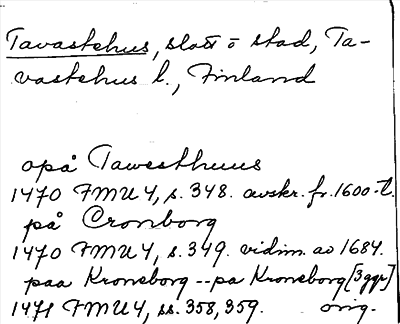 Tavastehus, slott o stad, Ta-
vastehus l., Finland
opå Tawesthuus
1470 FMU 4, s. 348. avskr. fr. 1600-t.
på Cronborg
1470 FMU 4, s. 349. vidim. av 1684.
paa Kroneborg -- pa Kroneborg [3 ggr]
1471 FMU 4, ss. 358, 359. orig.